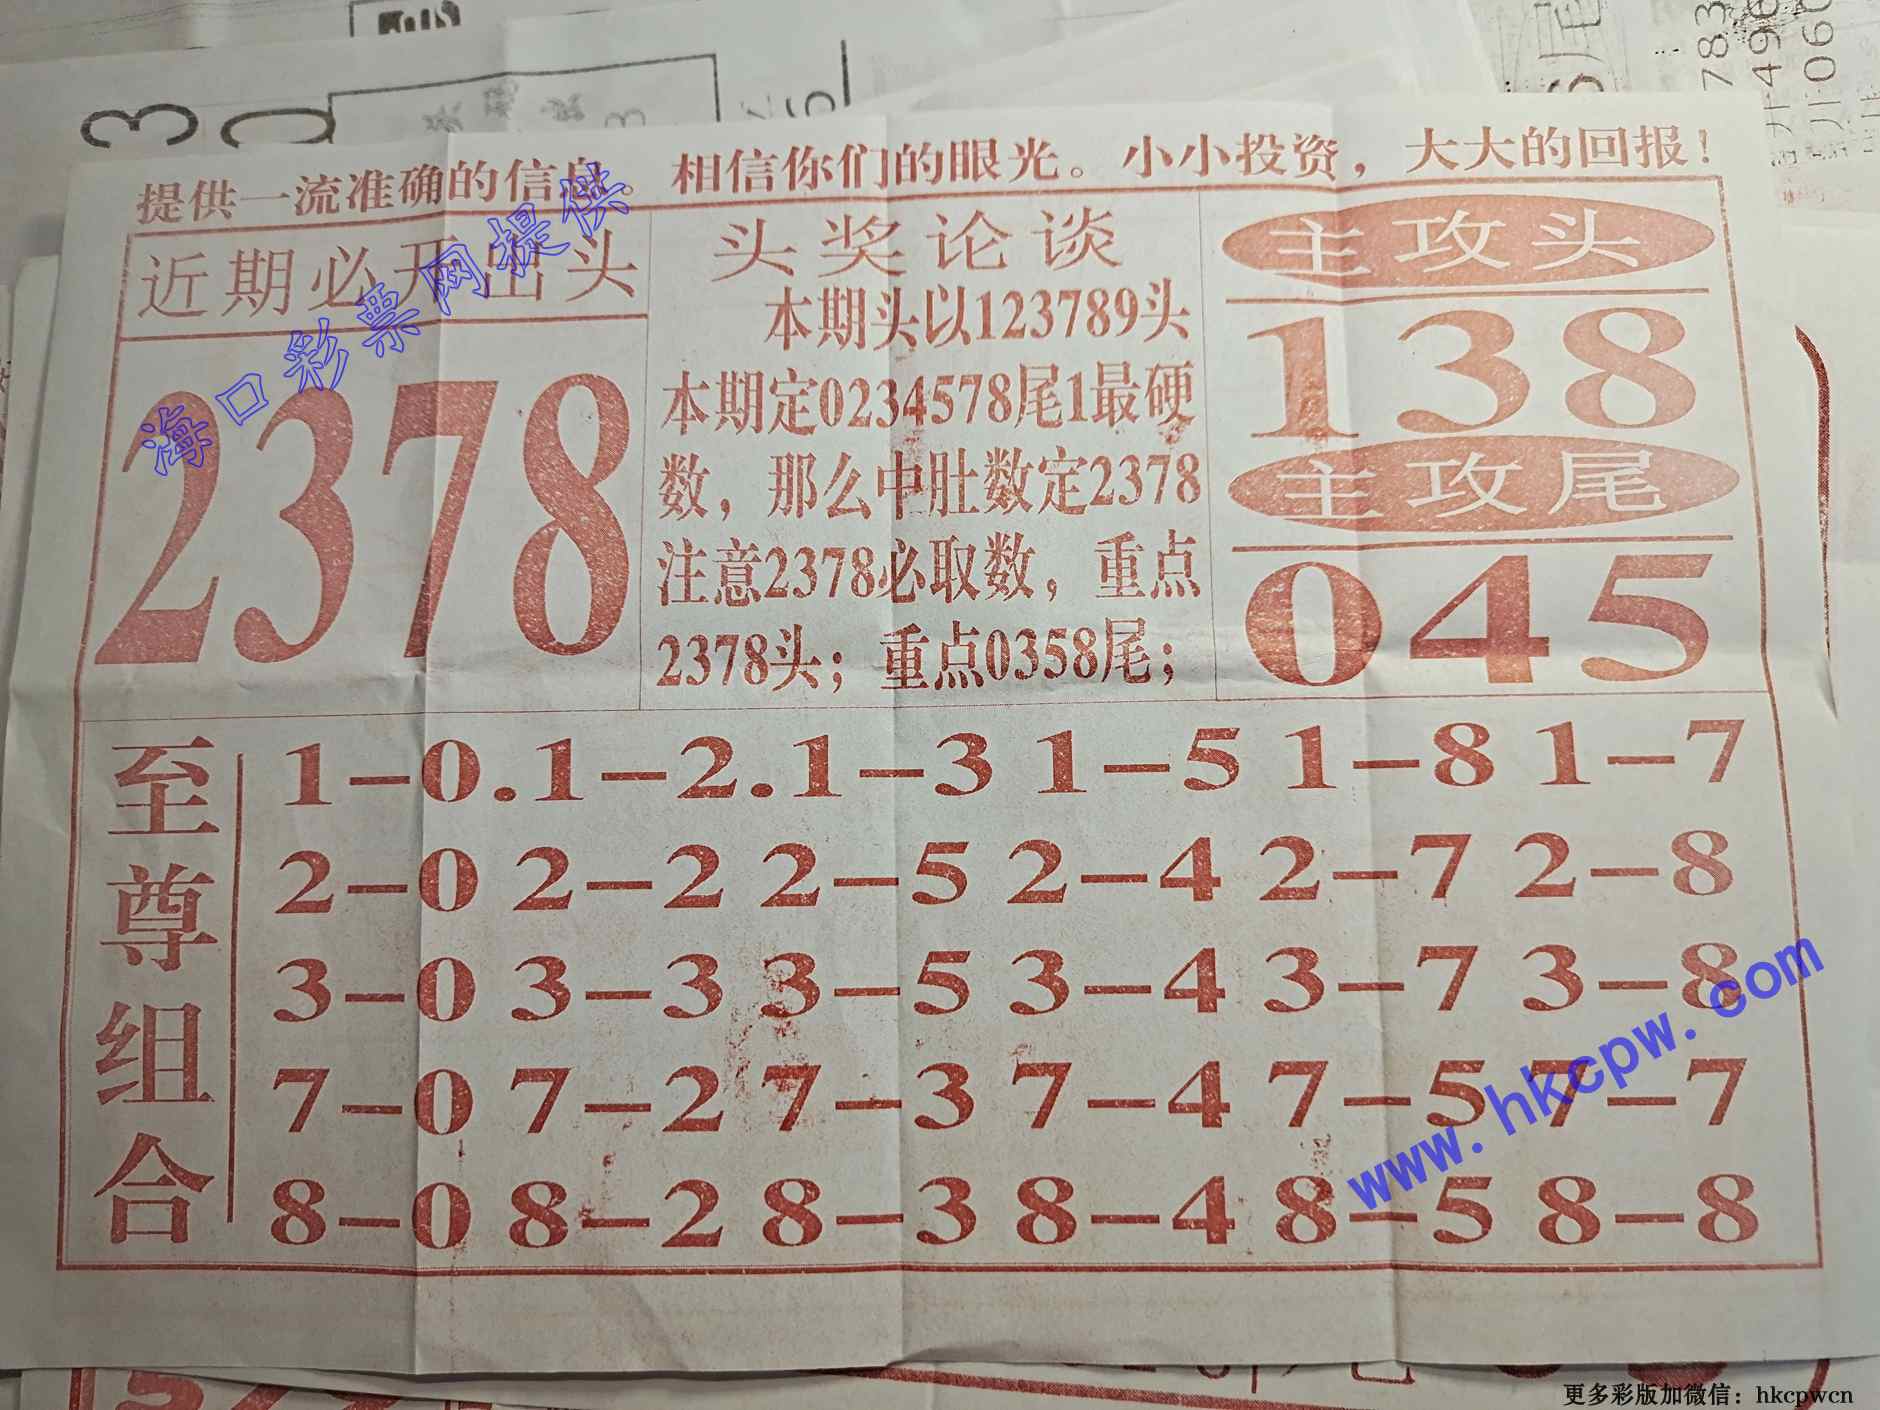 提供一流准确的信息。相信你们的眼光。小小投资，大大的回报！
近期必开出头
2378
头奖论谈
本期头以123789头
本期定0234578尾1最硬
数，那么中肚数定2378
注意2378必取数，重点
2378头；重点0358尾；
主攻头
138
主攻尾
045
至尊组合
1-0.1-2.1-3 1-5 1-8 1-7
2-0 2-2 2-5 2-4 2-7 2-8
3-0 3-3 3-5 3-4 3-7 3-8
7-0 7-2 7-3 7-4 7-5 7-7
8-0 8-2 8-3 8-4 8-5 8-8
海口彩票网提供
www.hkcpw.com
更多彩版加微信：hkcpwcn